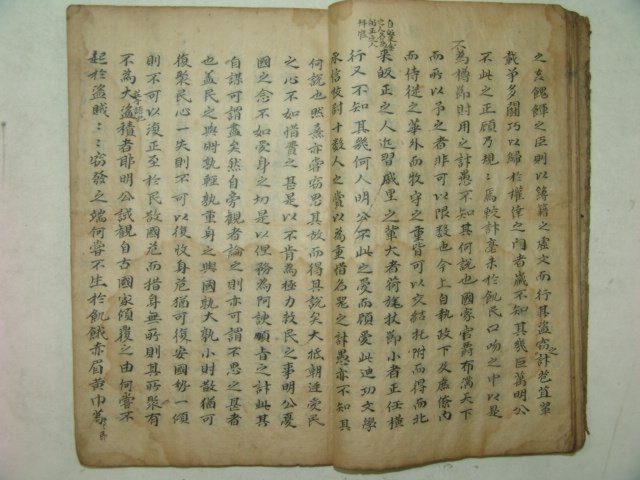 之矣餽餫之臣則以簿籍之虛文而行其盜竊之計苞苴輦
載爭多鬪巧以歸於權倖之門者歲不知其幾巨萬明公
不此之正顧乃規〻焉較計毫末於飢民口吻之中以是
為撙節財用之計愚不知其何說也國家官爵布滿天下
而所以予之者非可以限數也今上自執政下及庶僚內
而侍從之華外而牧守之重皆可以交結托附而得而北
來皈正之人近習戚里之輩大者荷旄扙節小者正任橫
行又不知其幾何人明公不此之愛而顧愛此迪功文學
承信校尉十數人之賞以為重惜名器之計愚亦不知其
何說也然熹亦嘗竊思其故而得其說矣大抵朝廷愛民
之心不如惜費之甚是以不肯為極力救民之事明公憂
國之念不如愛身之切是以但務為阿諛順旨之計此其
自謀可謂盡矣然自旁觀者論之則亦可謂不思之甚者
也盖民之與財孰輕孰重身之與國孰大孰小財散猶可
復聚民心一失則不可以復收身危猶可復安國勢一傾
則不可以復正至於民散國危而措身無所則其所聚有
不為大盜積者耶明公試觀自古國家傾覆之由何嘗不
起於盜賊〻〻竊發之端何嘗不生於飢餓赤眉黃巾葛